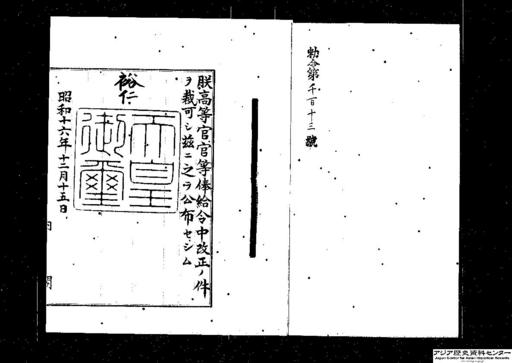 勅令第千百十三號
朕高等官官等俸給令中改正ノ件
ヲ裁可シ茲ニ之ヲ公布セシム
裕仁
天皇御璽
昭和十六年十二月十五日
内閣
アジア歴史資料センター
Japan Center for Asian Historical Records